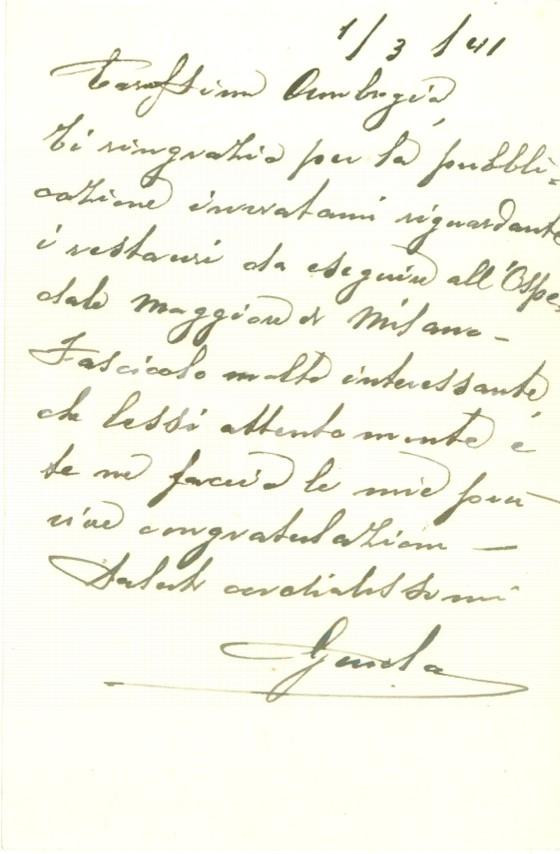 1/3/41
Carissimo Ambrogio,
ti ringrazio per la pubbli-
cazione inviatami riguardante
i restauri da eseguire all'Ospe-
dale Maggiore di Milano -
Fascicolo molto interessante,
che lessi attentamente e
te ne faccio le mie più
vive congratulazioni —
Saluti cordialissimi